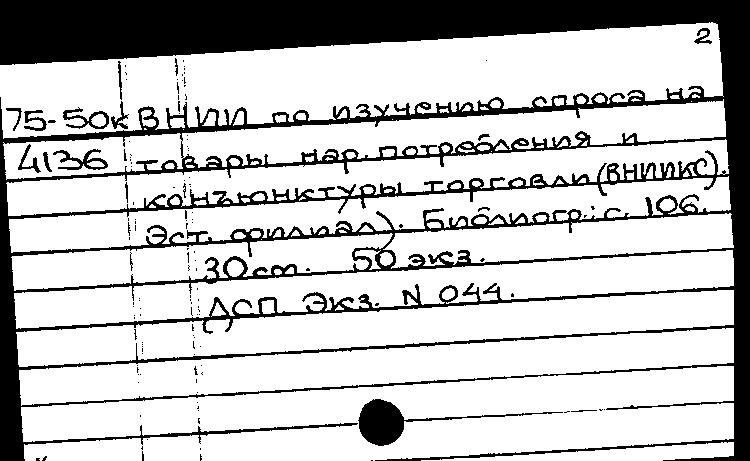 2
75-50к ВНИИ по изучению спроса на
4136 товары нар. потребления и
конъюнктуры торговли (ВНИИКС).
Эст. филиал). Библиогр.: с. 106.
30 cm. 50 экз.
ДСП. Экз. N 044.